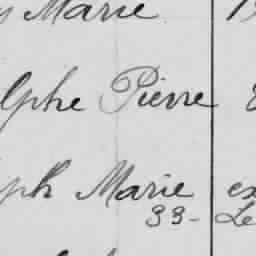 Marie
lphe Pierre
ph Marie ex
33- Le